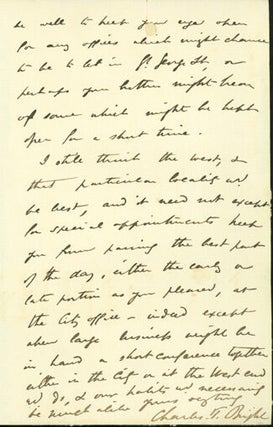 be well to keep your eyes open
for any offices which might chance
to be to let in Gt. George St. or
perhaps your brother might hear
of some which might be kept
open for a short time.
I still think the west, &
that particular locality wd
be best, and it need not except
for special appointments keep
you from passing the best part
of the day, either the early or
late portion as you pleased, at
the City office – indeed except
when large business might be
in hand a short conference together
either in the City or at the West end
wd do, & our habits wd necessarily
be much alike yours anything
Charles T. Bright